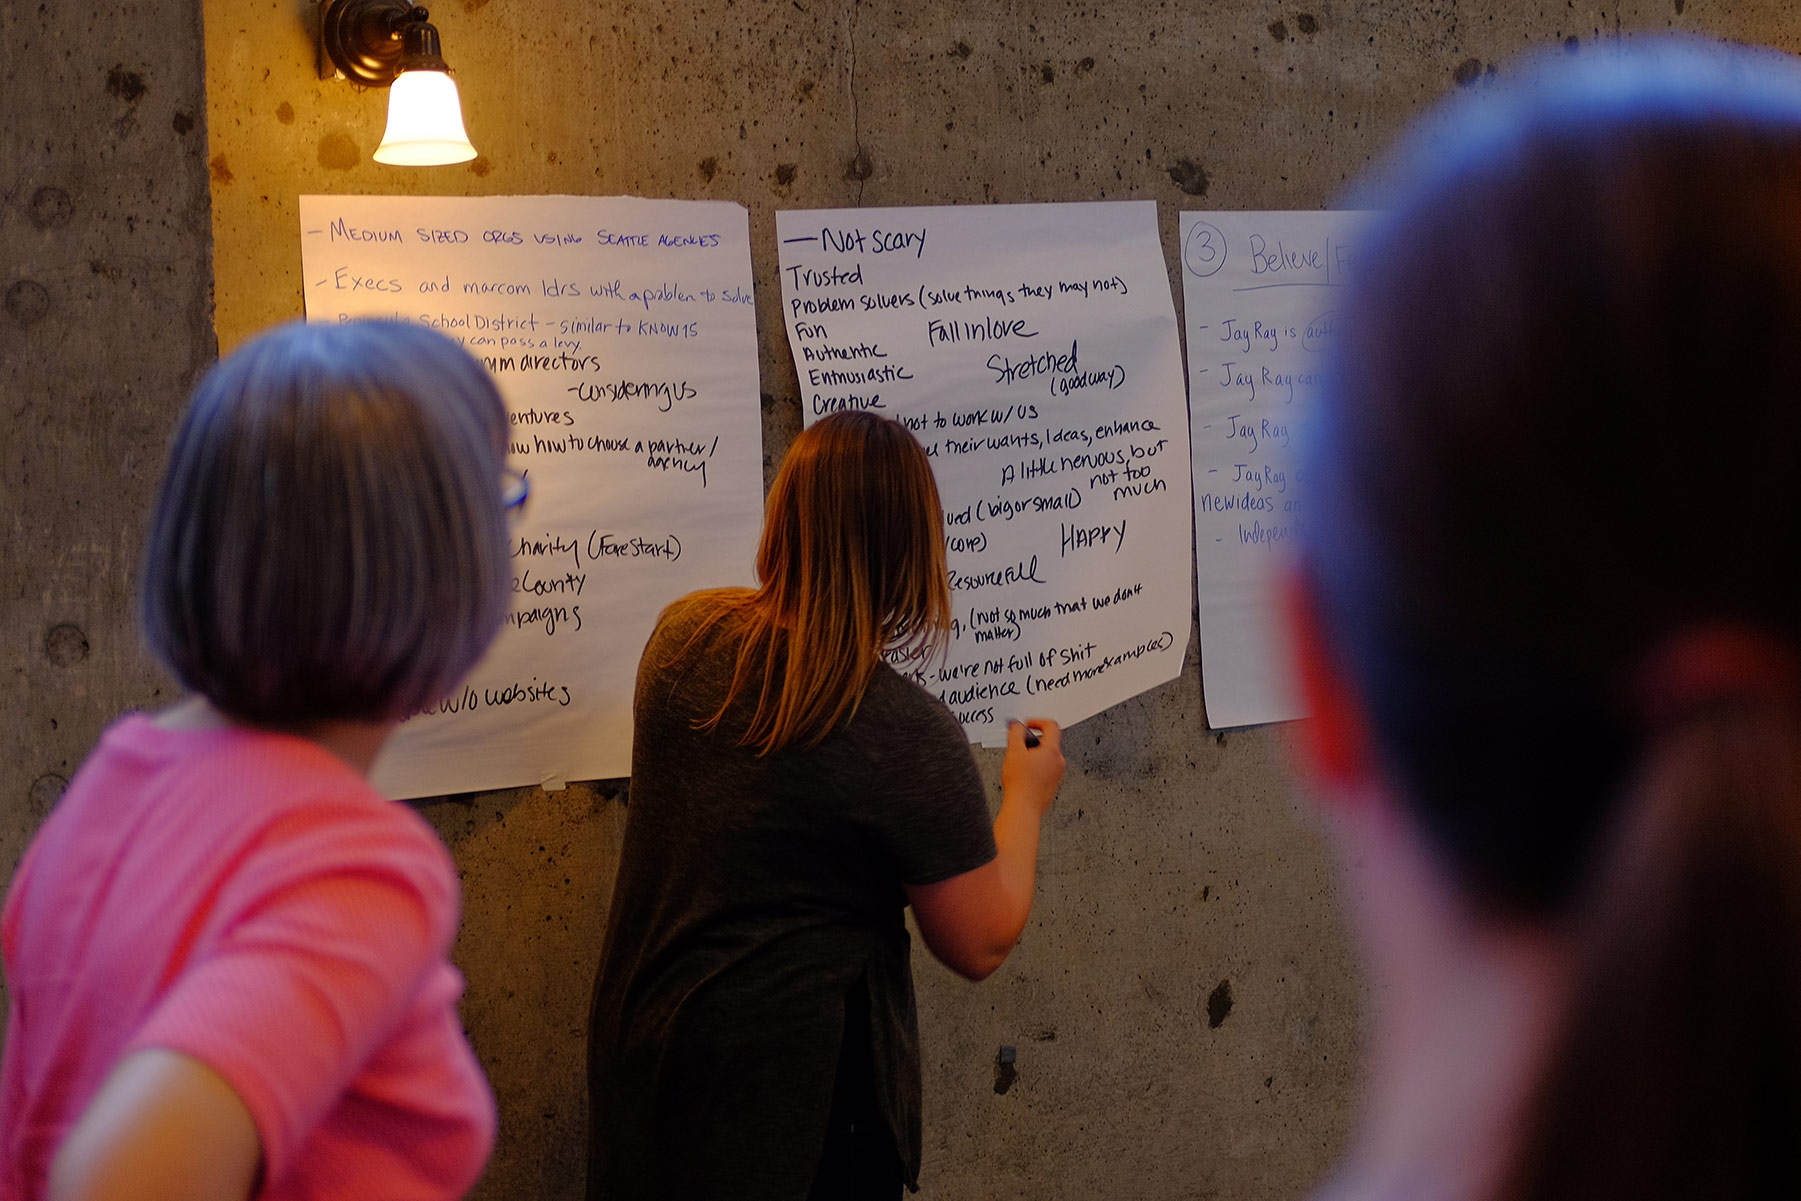 - MEDIUM SIZED ORGS USING SEATTLE AGENCIES
- Execs and marcom ldrs with a problem to solve
School District - similar to KNOW15
can pass a levy.
directors
-considering us
how to choose a partner/
agency
Charity (FareStart)
County
w/o websites
—Not scary
Trusted
Problem solvers (solve things they may not)
Fun
Fall in love
Authentic
Stretched
Enthusiastic
(good way)
Creative
not to work w/ us
their wants, Ideas, enhance
A little nervous, but
not too
much
(big or small)
HAPPY
Resourcefull
(not so much that we don't
matter)
easier
- we're not full of shit
audience (need more examples)
3 Believe/
- Jay Ray is
- Jay Ray can
- Jay Ray
- Jay Ray
new ideas
-